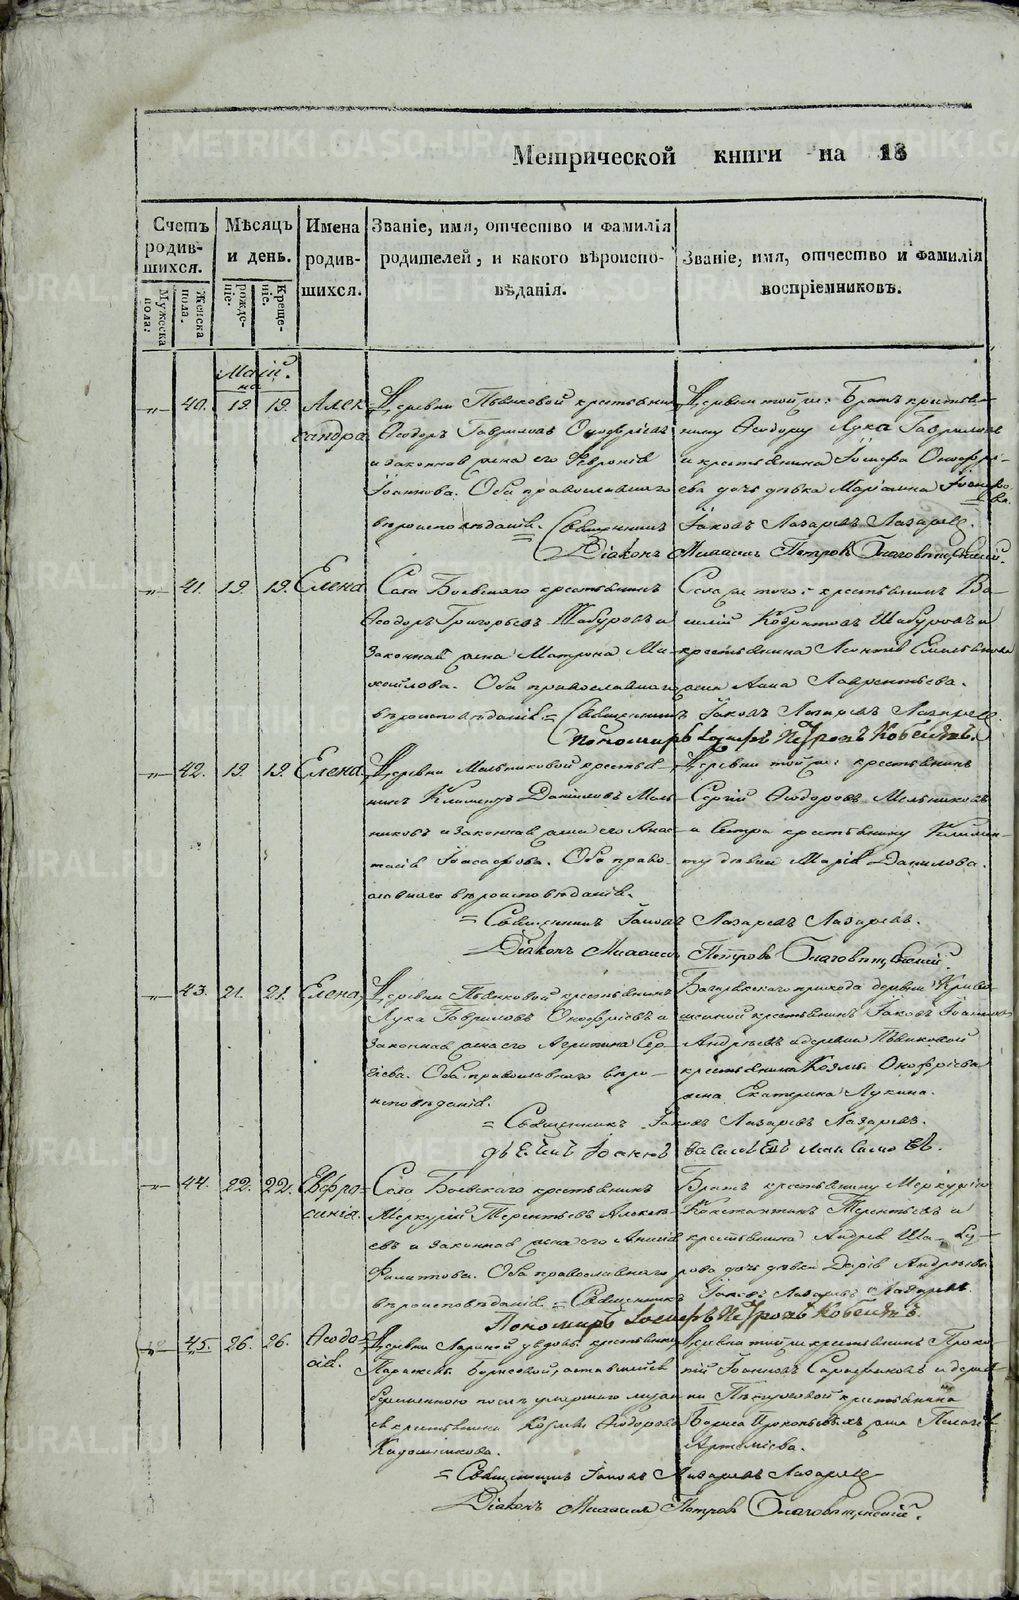 Метрической книги на 18
Счетъ родив-шихся.
Мужеска пола.
Женска пола.
Мѣсяцъ и день.
рожде-ніе.
Креще-ніе.
Имена родив-шихся.
Званіе, имя, отчество и фамилія
родителей, и какого вѣроиспо-
вѣданія.
Званіе, имя, отчество и фамилія
воспріемниковъ.
Маій.
40. 19. 19. Алек-
сандра
Деревни Пьянковой крестьянинъ
Ѳеодоръ Гавриловъ Онофріевъ
и законная жена его Февронія
Іоаннова. Оба православнаго
вѣроисповѣданія.
Деревни той же: Братъ крестья-
нину Ѳеодору Лука Гавриловъ
и крестьянина Іосифа Онофрі-
ева дочь дѣвка Маріамна Іосифо-
ва.
Священникъ Іаковъ Лазаревъ Лазаревъ.
Діаконъ Петровъ Благовѣщенскій.
41. 19. 19. Елена
Села Боевскаго крестьянинъ
Ѳеодоръ Григорьевъ Шабуровъ и
законная жена Матрона Ми-
хайлова. Оба православнаго
вѣроисповѣданія.
Села же того: крестьянинъ Ва-
силій Кодратовъ Шабуровъ и
крестьянина Леонтія Емельянова
жена Анна Лаврентьева.
Священникъ Іаковъ Лазаревъ Лазаревъ.
Пономарь Петровъ
42. 19. 19. Елена
Деревни Мельниковой крестья-
нинъ Климентъ Даниловъ Мель-
никовъ и законная жена его Анас-
тасія Іоасафова. Оба право-
славнаго вѣроисповѣданія.
Деревни той же: крестьянинъ
Сергій Ѳеодоровъ Мельниковъ
и Сестра крестьянину Климен-
ту дѣвка Марія Данилова.
Священникъ Іаковъ Лазаревъ Лазаревъ.
Діаконъ Петровъ Благовѣщенскій.
43. 21. 21. Елена
Деревни Пьянковой крестьянинъ
Лука Гавриловъ Онофріевъ и
законная жена его Агрипина Сер-
гіева. Оба православнаго вѣро-
исповѣданія.
Багарякскаго прихода деревни
крестьянинъ Іаковъ Іоанновъ
Андреевъ и деревни Пьянковой
крестьянина Козмы Онофріева
жена Екатерина Лукина.
Священникъ Іаковъ Лазаревъ Лазаревъ.
44. 22. 22. Евфро-
синія.
Села Боевскаго крестьянинъ
Меркурій Терентьевъ Алексе-
евъ и законная жена его Анисія
Филатова. Оба православнаго
вѣроисповѣданія.
Братъ крестьянину Меркурію
Константинъ Терентьевъ и
крестьянина Андрея Шабу-
рова дочь дѣвка Дарія Андреева
Священникъ Іаковъ Лазаревъ Лазаревъ.
Пономарь Петровъ
45. 26. 26. Ѳеодо-
сія.
Деревни Лариной у вдовы крестьянки
Параскевы Борисовой, оставшейся
беременною послѣ умершаго мужа
крестьянина Козмы Ѳеодорова
Кадошникова.
Деревни той же крестьянинъ Проко-
пій Іоанновъ и дерев-
ни крестьянина
Бориса Прокопьева жена Пелагія
Артеміева.
Священникъ Іаковъ Лазаревъ Лазаревъ
Діаконъ Петровъ Благовѣщенскій.
METRIKI.GASO-URAL.RU